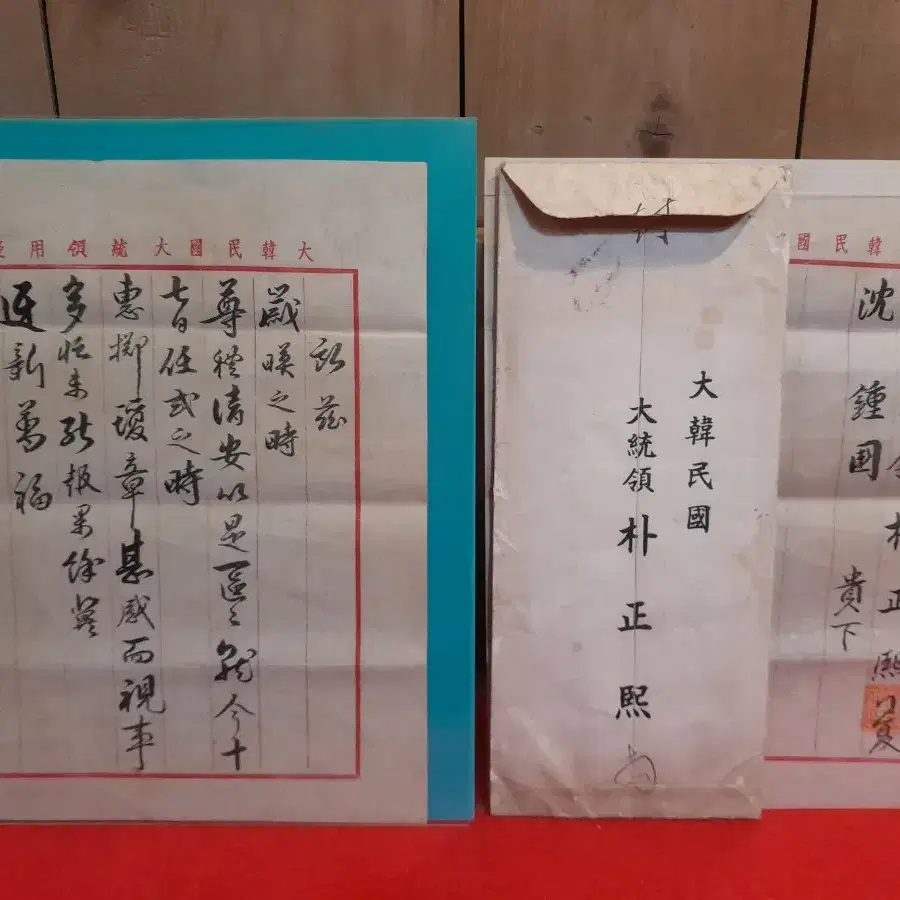 大韓民國大統領用
敍玆
歲暎之時
尊體淸安以是區區 就 今十
七日任式之時
惠擲瓊章甚感而視事
多忙未能報 餘冀
迓新萬福
封
大韓民國
大統領 朴正熙
韓民國
朴正熙
沈鍾国
貴下